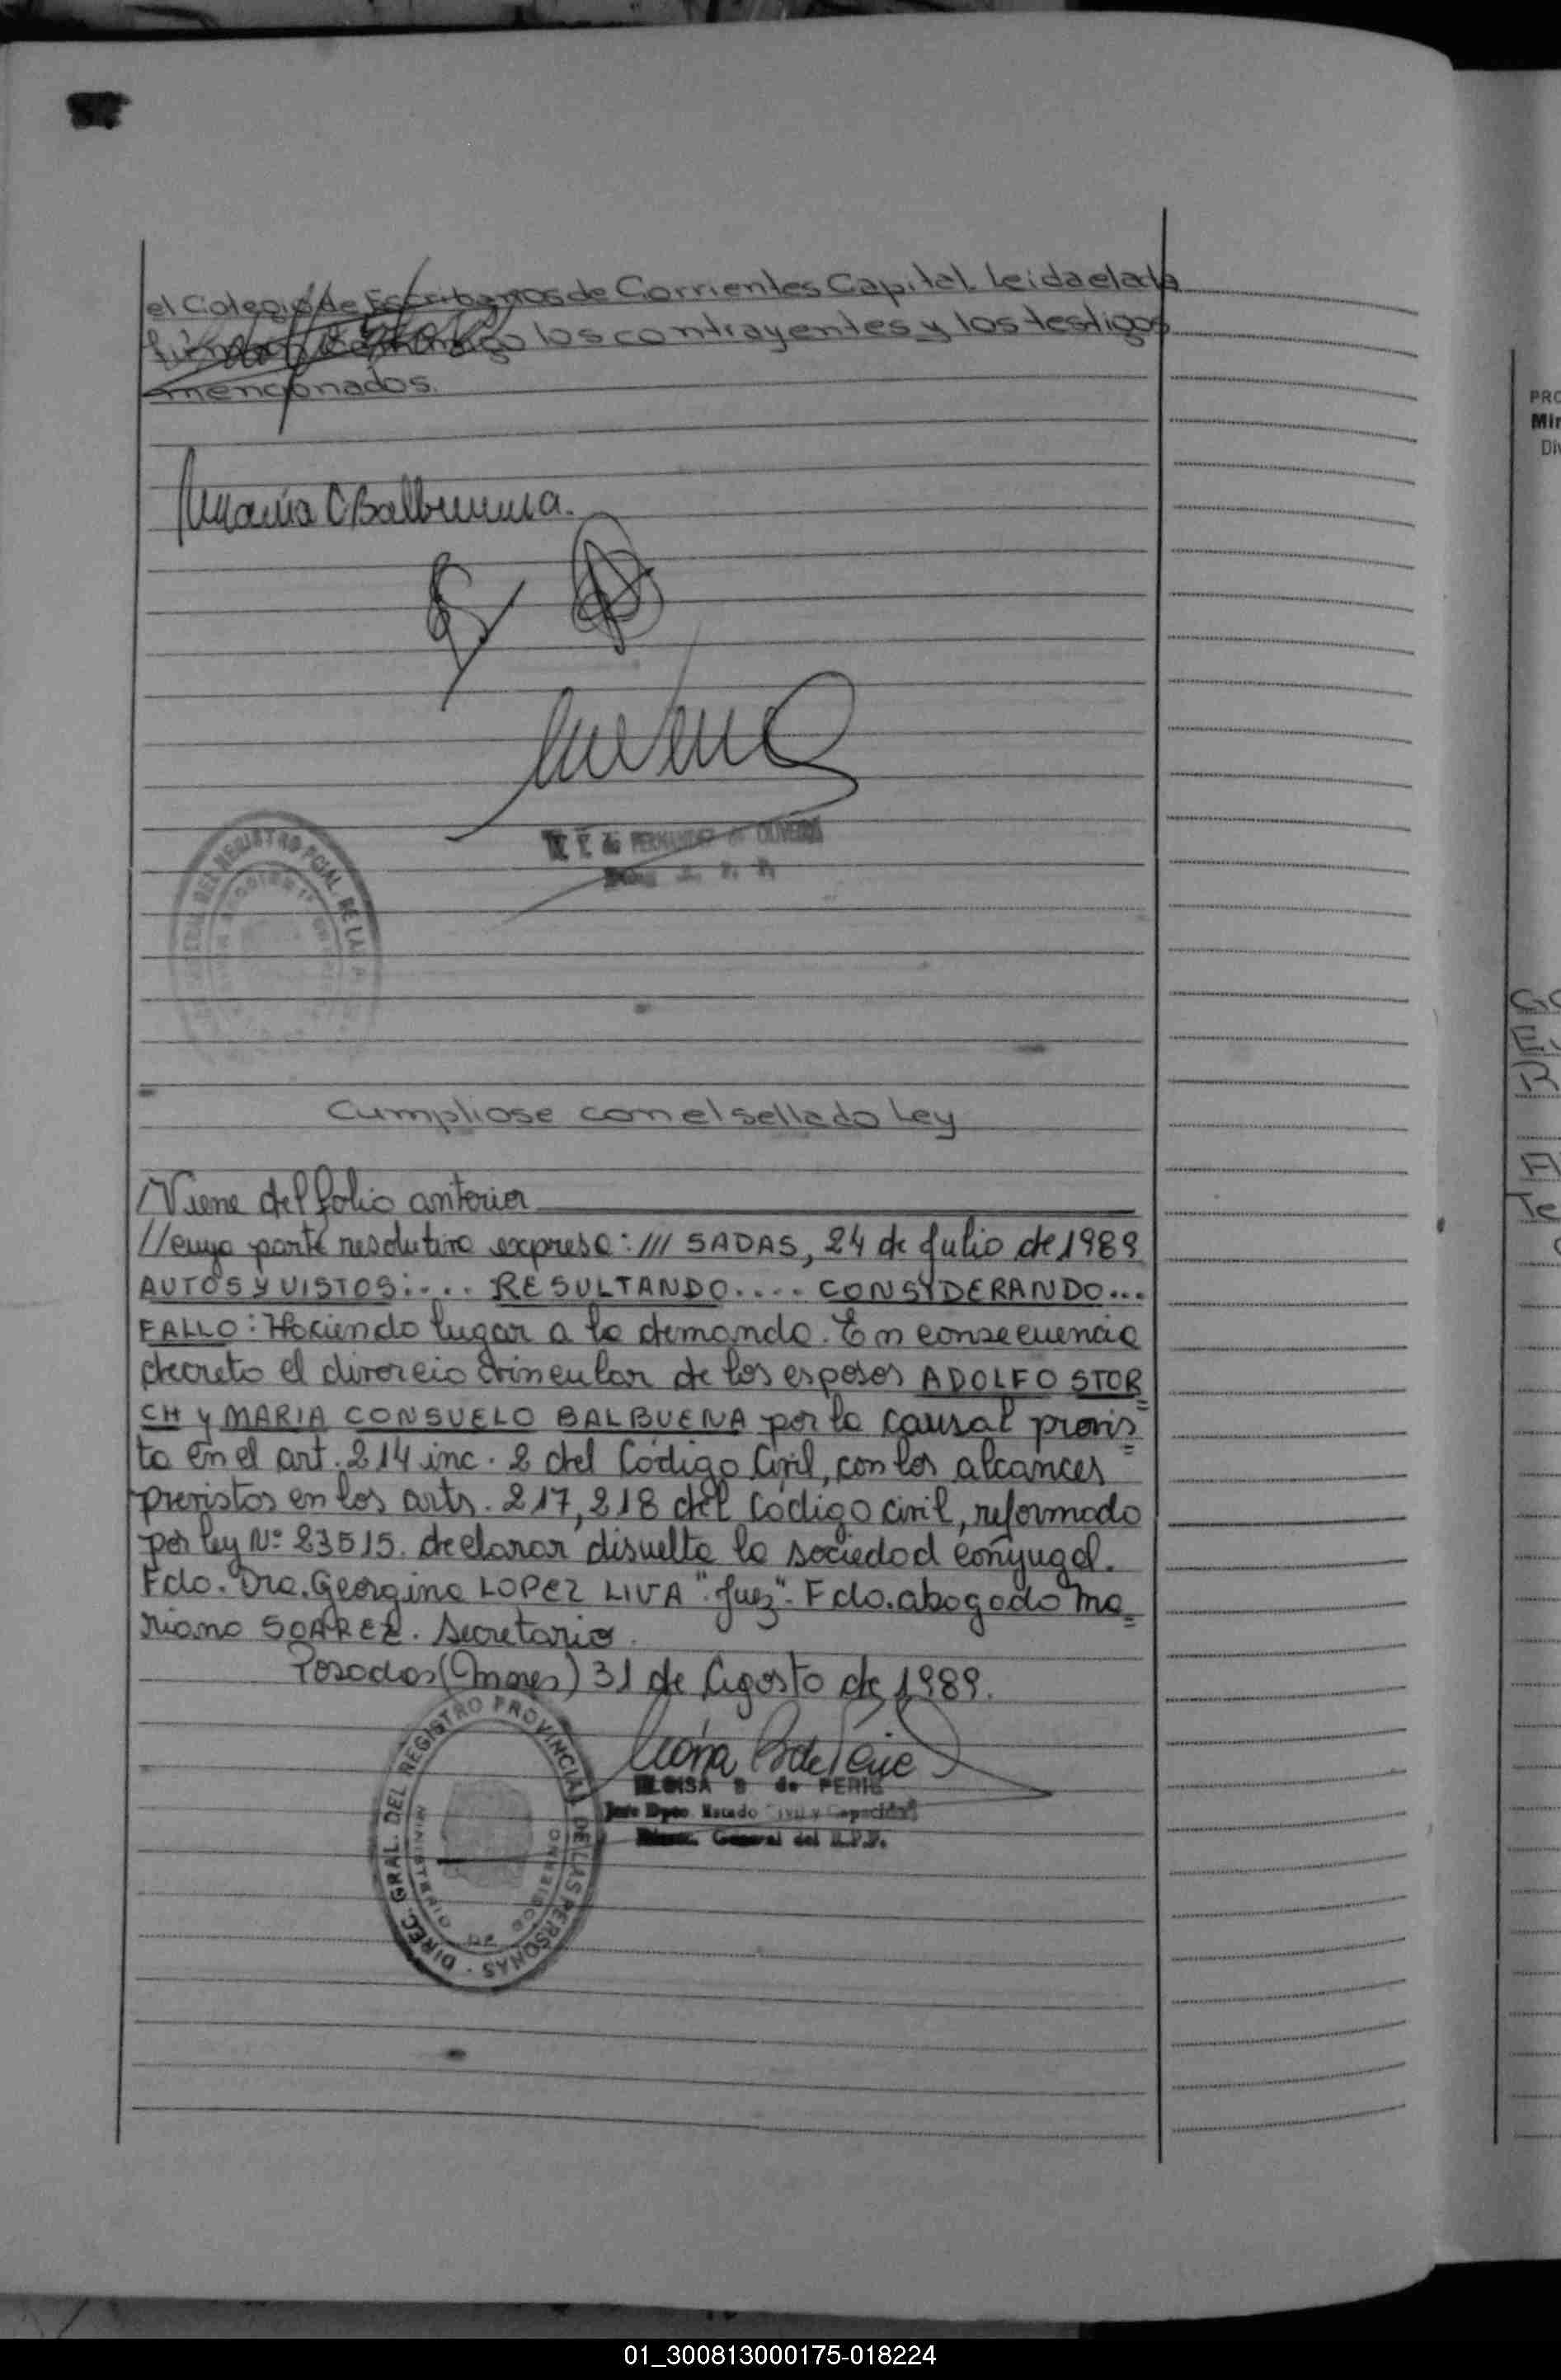 el Colegio de Escribanos de Corrientes Capital. Leida el acta
los contrayentes y los testigos
mencionados.
Maria C Balbuena.
FERNANDEZ de OLIVEIRA
DEL REGISTRO PCIAL. DE LAS
Cumpliose con el sellado Ley
//Viene del folio anterior
//cuya parte resolutiva expresa: /// SADAS, 24 de Julio de 1989
AUTOS Y VISTOS:.... RESULTANDO.... CONSIDERANDO...
FALLO: Haciendo lugar a la demanda. En consecuencia
decreto el divorcio vincular de los esposos ADOLFO STOR=
CH y MARIA CONSUELO BALBUENA por la causal previs=
ta en el art. 214 inc. 2 del Código Civil, con los alcances
previstos en los arts. 217, 218 del Código civil, reformado
por ley Nº 23515. declarar disuelta la sociedad conyugal.
Fdo. Dra. Georgina LOPEZ LIVA "Juez". Fdo. abogado Ma=
riano SOAREZ. Secretario.
Posadas (Mnes) 31 de Agosto de 1989.
ELOISA B de PERIE
Jefe Dpto. Estado Civil y Capacidad
Direc. General del R.P.P.
DIREC. GRAL. DEL REGISTRO PROVINCIAL DE LAS PERSONAS.
MINISTERIO DE GOBIERNO
PRO
Min
Div
GO
E.
R
A
Te
01_300813000175-018224